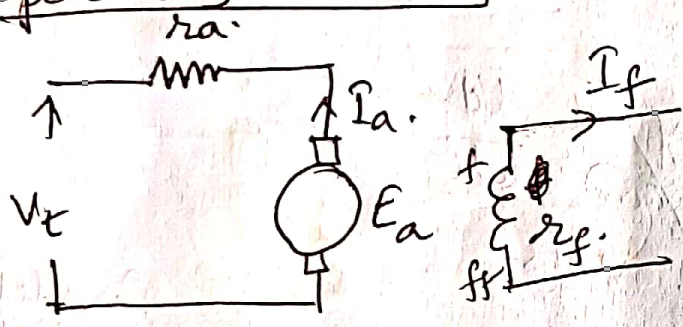 ra.
Ia.
If
Vt
Ea
f
rf.
ff